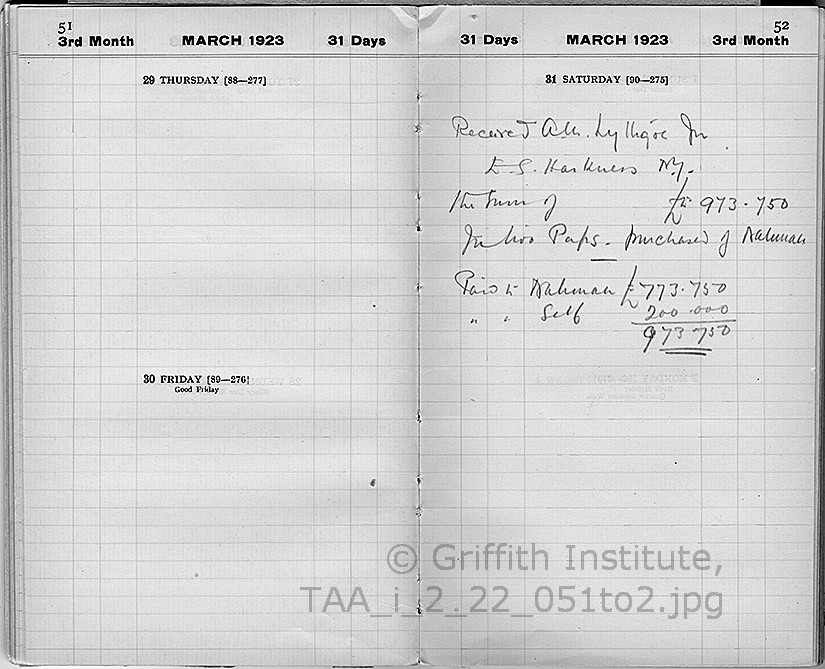 51
3rd Month MARCH 1923 31 Days
29 THURSDAY [88—277]
30 FRIDAY [89—276]
Good Friday
52
31 Days MARCH 1923 3rd Month
31 SATURDAY [90—275]
Received A.M. Lythgoe for
E.S. Harkness N.Y.
the sum of £E 973.750
for two Paps. purchased of Nahman
Paid to Nahman £773.750
" " Self 200.000
973 750
© Griffith Institute,
TAA_i_2_22_051to2.jpg